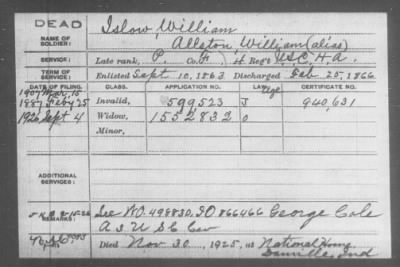 DEAD
NAME OF SOLDIER:
Islow, William
Allston, William (alias)
SERVICE:
Late rank, P. Co. F, 4 Reg't U.S.C.H.A.
TERM OF SERVICE:
Enlisted Sept 10, 1863 Discharged Feb 25, 1866
DATE OF FILING. CLASS. APPLICATION NO. LAW. CERTIFICATE NO.
1907 Mar 15
1887 Feby 25 Invalid, 599,523 J 940,631
1926 Sept 4 Widow, 1552832 O
Minor,
ADDITIONAL SERVICES:
REMARKS:
See WO. 498830, SO 866466 George Cole
A 5 U S C Cav
Died Nov 30, 1925, at National Home
Danville, Ind